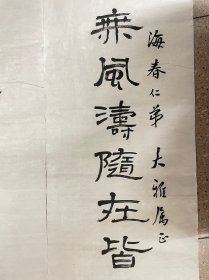 海春仁弟 大雅属正
無風濤隨在皆